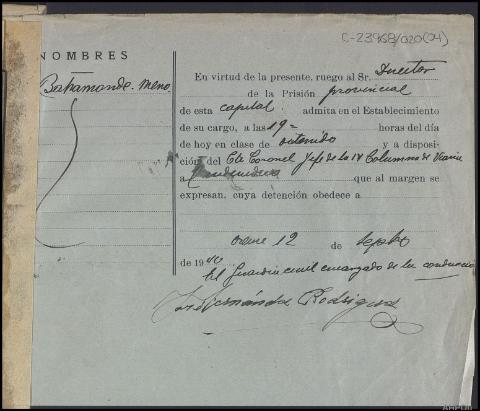 C-23968/020(04)
NOMBRES
Bahamonde. Meno
En virtud de la presente, ruego al Sr. Director
de la Prisión provincial
de esta capital admita en el Establecimiento
de su cargo, a las 19 = horas del día
de hoy en clase de detenido y a disposi-
ción del Cte Coronel Jefe de la Columna de
a que al margen se
expresan, cuya detención obedece a
12 de Sepbre
de 1940
El Guardia civil encargado de la conducción
Hernández Rodríguez